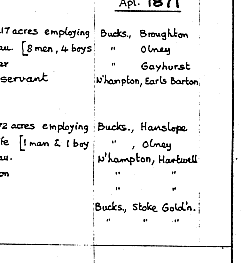 Apl. 1871
17 acres employing Bucks., Broughton
au. [8 men, 4 boys " Olney
er " Gayhurst
servant N'hampton, Earls Barton
72 acres employing Bucks., Hanslope
fe [1 man & 1 boy " , Olney
au. N'hampton, Hartwell
on " "
" "
Bucks., Stoke Gold'n.
" " "